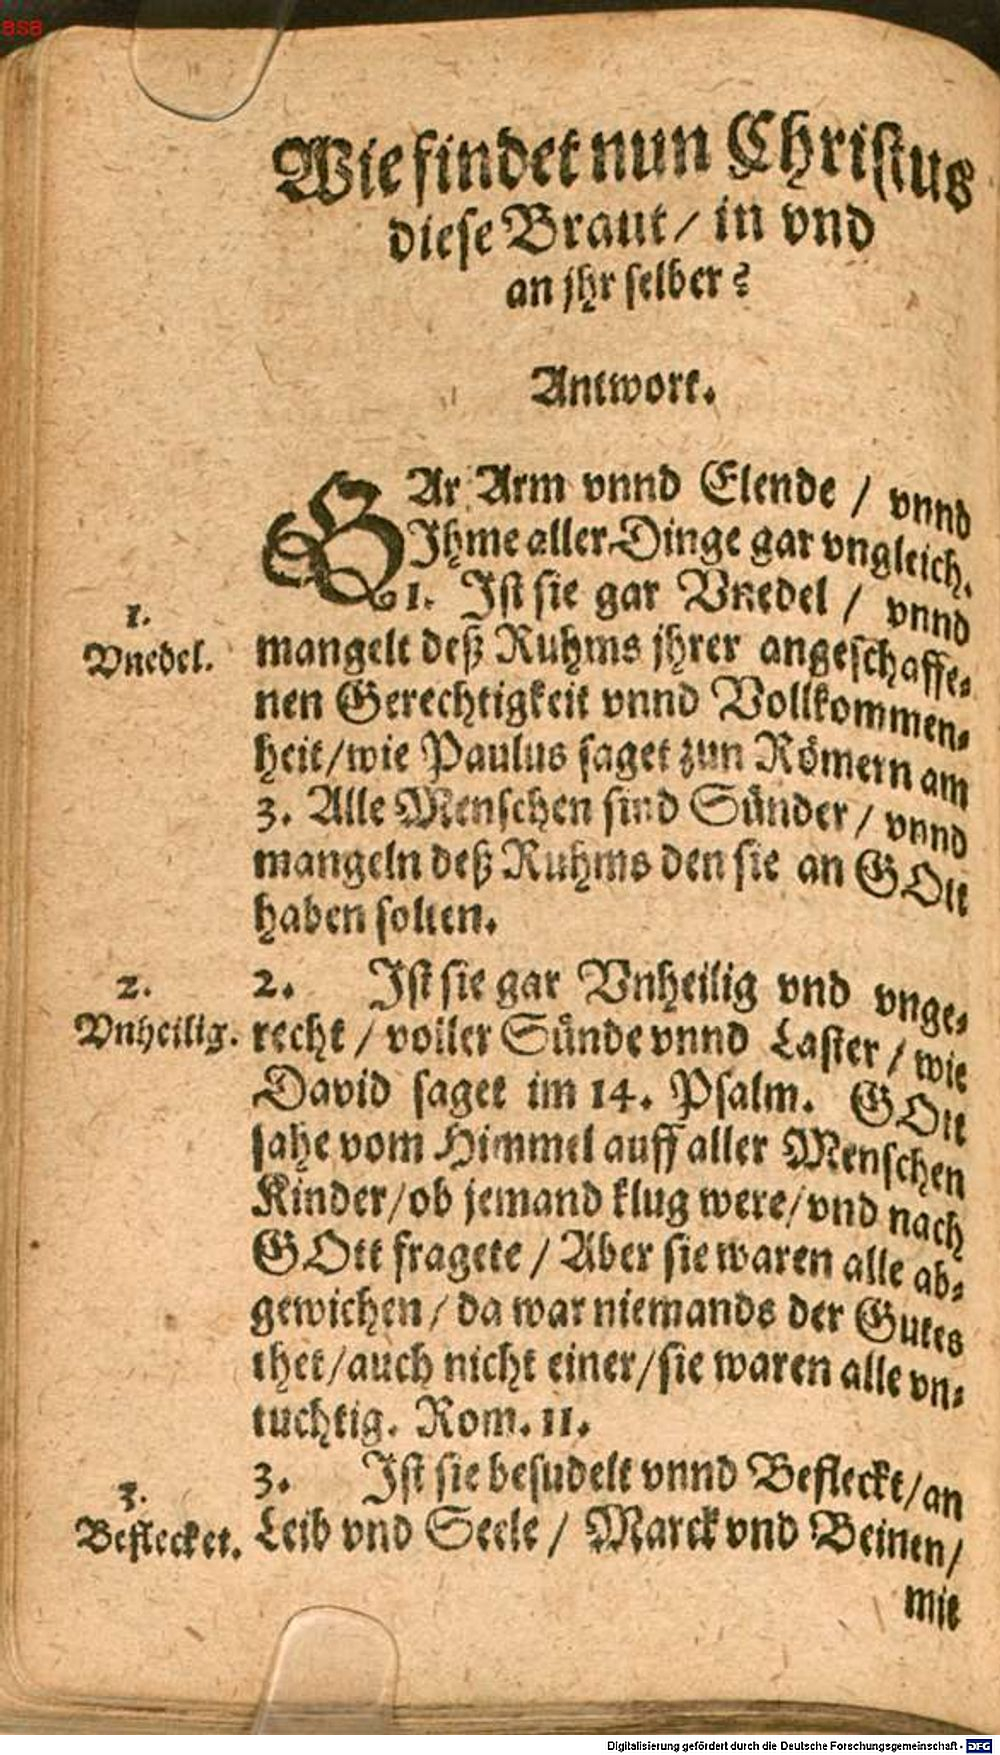 asa
Wie findet nun Christus
diese Braut / in vnd
an jhr selber?
Antwort.
GAr Arm vnnd Elende / vnnd
Ihme aller Dinge gar vngleich.
1. Ist sie gar Vnedel / vnnd
1.
Vnedel.
mangelt deß Ruhms jhrer angeschaffe-
nen Gerechtigkeit vnnd Vollkommen-
heit/wie Paulus saget zun Römern am
3. Alle Menschen sind Sünder / vnnd
mangeln deß Ruhms den sie an GOtt
haben solten.
2.
Vnheilig.
2. Ist sie gar Vnheilig vnd vnge-
recht / voller Sünde vnnd Laster / wie
David saget im 14. Psalm. GOtt
sahe vom Himmel auff aller Menschen
Kinder/ob jemand klug were/vnd nach
GOtt fragete / Aber sie waren alle ab-
gewichen / da war niemands der Gutes
thet/auch nicht einer/sie waren alle vn-
tuchtig. Rom. 11.
3.
Beflecket.
3. Ist sie besudelt vnnd Befleckt/an
Leib vnd Seele / Marck vnd Beinen/
mit
Digitalisierung gefördert durch die Deutsche Forschungsgemeinschaft - DFG